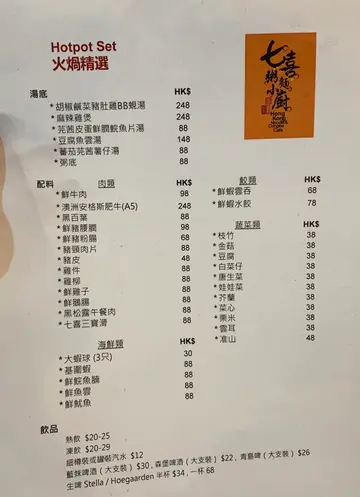 Hotpot Set
火鍋精選
七喜
粥麵
小廚
Hong Kong
Noodle &
Congee
Cafe
湯底 HK$
*胡椒鹹菜豬肚雞BB蜆湯 248
*麻辣雞煲 248
*芫茜皮蛋鮮鯇魚片湯 88
*豆腐魚雲湯 148
*蕃茄芫茜薯仔湯 88
*粥底 88
配料 肉類 HK$
*鮮牛肉 98
*澳洲安格斯肥牛(A5) 248
*黑百葉 88
*鮮豬腰膶 98
*鮮豬粉腸 68
*豬頸肉片 88
*豬皮 48
*雞件 88
*雞柳 88
*鮮雞子 88
*鮮鵝腸 88
*黑松露午餐肉 88
*七喜三寶滑 88
海鮮類 HK$
*大蝦球 (3只) 30
*基圍蝦 88
*鮮鯇魚腩 88
*鮮魚雲 88
*鮮魷魚 88
餃類 HK$
*鮮蝦雲吞 68
*鮮蝦水餃 78
蔬菜類 HK$
*枝竹 38
*金菇 38
*豆腐 38
*白菜仔 38
*唐生菜 38
*娃娃菜 38
*芥蘭 38
*菜心 38
*栗米 38
*雲耳 38
*准山 48
飲品
熱飲 $20-25
凍飲 $20-29
細樽裝或罐裝汽水 $12
藍妹啤酒(大支裝) $30 , 森堡啤酒(大支裝) $22 , 青島啤(大支裝) $26
生啤 Stella / Hoegaarden 半杯 $34 , 一杯 68